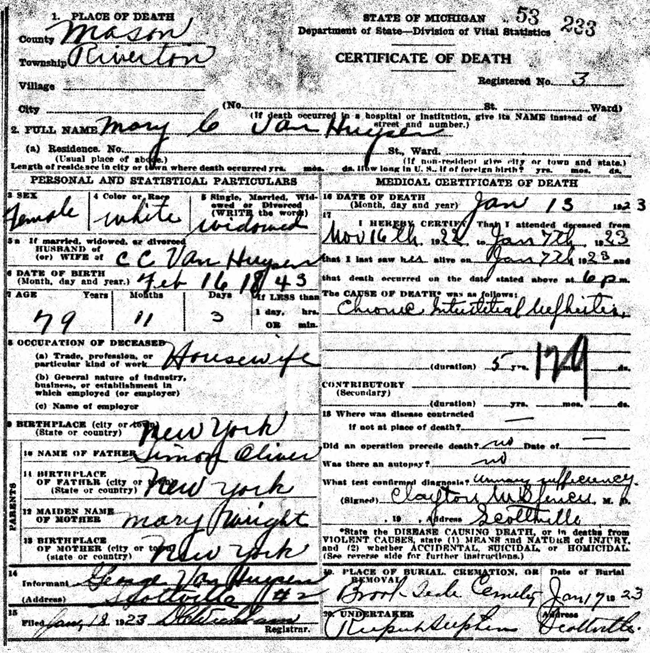 1. PLACE OF DEATH
County Mason
Township Riverton
Village
City
STATE OF MICHIGAN 53 233
Department of State—Division of Vital Statistics
CERTIFICATE OF DEATH
Registered No. 3
(No. St. Ward)
(If death occurred in a hospital or institution, give its NAME instead of street and number.)
2. FULL NAME Mary C Van Huysen
(a) Residence. No. St., Ward.
(Usual place of abode) (If non-resident give city or town and state.)
Length of residence in city or town where death occurred yrs. mos. ds. How long in U. S., if of foreign birth? yrs. mos. ds.
PERSONAL AND STATISTICAL PARTICULARS
3 SEX Female
4 Color or Race White
5 Single, Married, Widowed or Divorced (WRITE the word) Widowed
5a If married, widowed, or divorced
HUSBAND of
(or) WIFE of C C Van Huysen
6 DATE OF BIRTH
(Month, day and year.) Feb 16 1843
7 AGE Years Months Days If LESS than
1 day, hrs.
OR min.
79 11 3
8 OCCUPATION OF DECEASED
(a) Trade, profession, or
particular kind of work Housewife
(b) General nature of industry,
business, or establishment in
which employed (or employer)
(c) Name of employer
9 BIRTHPLACE (city or town)
(State or country) New York
PARENTS
10 NAME OF FATHER Simon Oliver
11 BIRTHPLACE
OF FATHER (city or town)
(State or country) New York
12 MAIDEN NAME
OF MOTHER Mary Wright
13 BIRTHPLACE
OF MOTHER (city or town)
(state or country) New York
14
Informant George Van Huysen
(Address) Scottville #2
15
Filed Jany 18, 1923
Registrar.
MEDICAL CERTIFICATE OF DEATH
16 DATE OF DEATH
(Month, day and year) Jan 13 1923
17
I HEREBY CERTIFY, That I attended deceased from
Nov 16th 1922 to Jan 7th 1923
that I last saw her alive on Jan 7th 1923 and
that death occurred on the date stated above at 6 p m.
The CAUSE OF DEATH* was as follows:
Chronic Interstitial Nephritis
(duration) 5 yrs. mos. ds.
129
CONTRIBUTORY
(Secondary)
(duration) yrs. mos. ds.
18 Where was disease contracted
If not at place of death? —
Did an operation precede death? no Date of —
Was there an autopsy? no
What test confirmed diagnosis? urinary
(Signed) Clayton M. D.
, 19 , Address Scottville
*State the DISEASE CAUSING DEATH, or in deaths from
VIOLENT CAUSES, state (1) MEANS and NATURE of INJURY,
and (2) whether ACCIDENTAL, SUICIDAL, or HOMICIDAL.
(See reverse side for further instructions.)
19. PLACE OF BURIAL, CREMATION, OR REMOVAL Date of Burial
Jan 17 1923
20. UNDERTAKER Address
Stephens Scottville